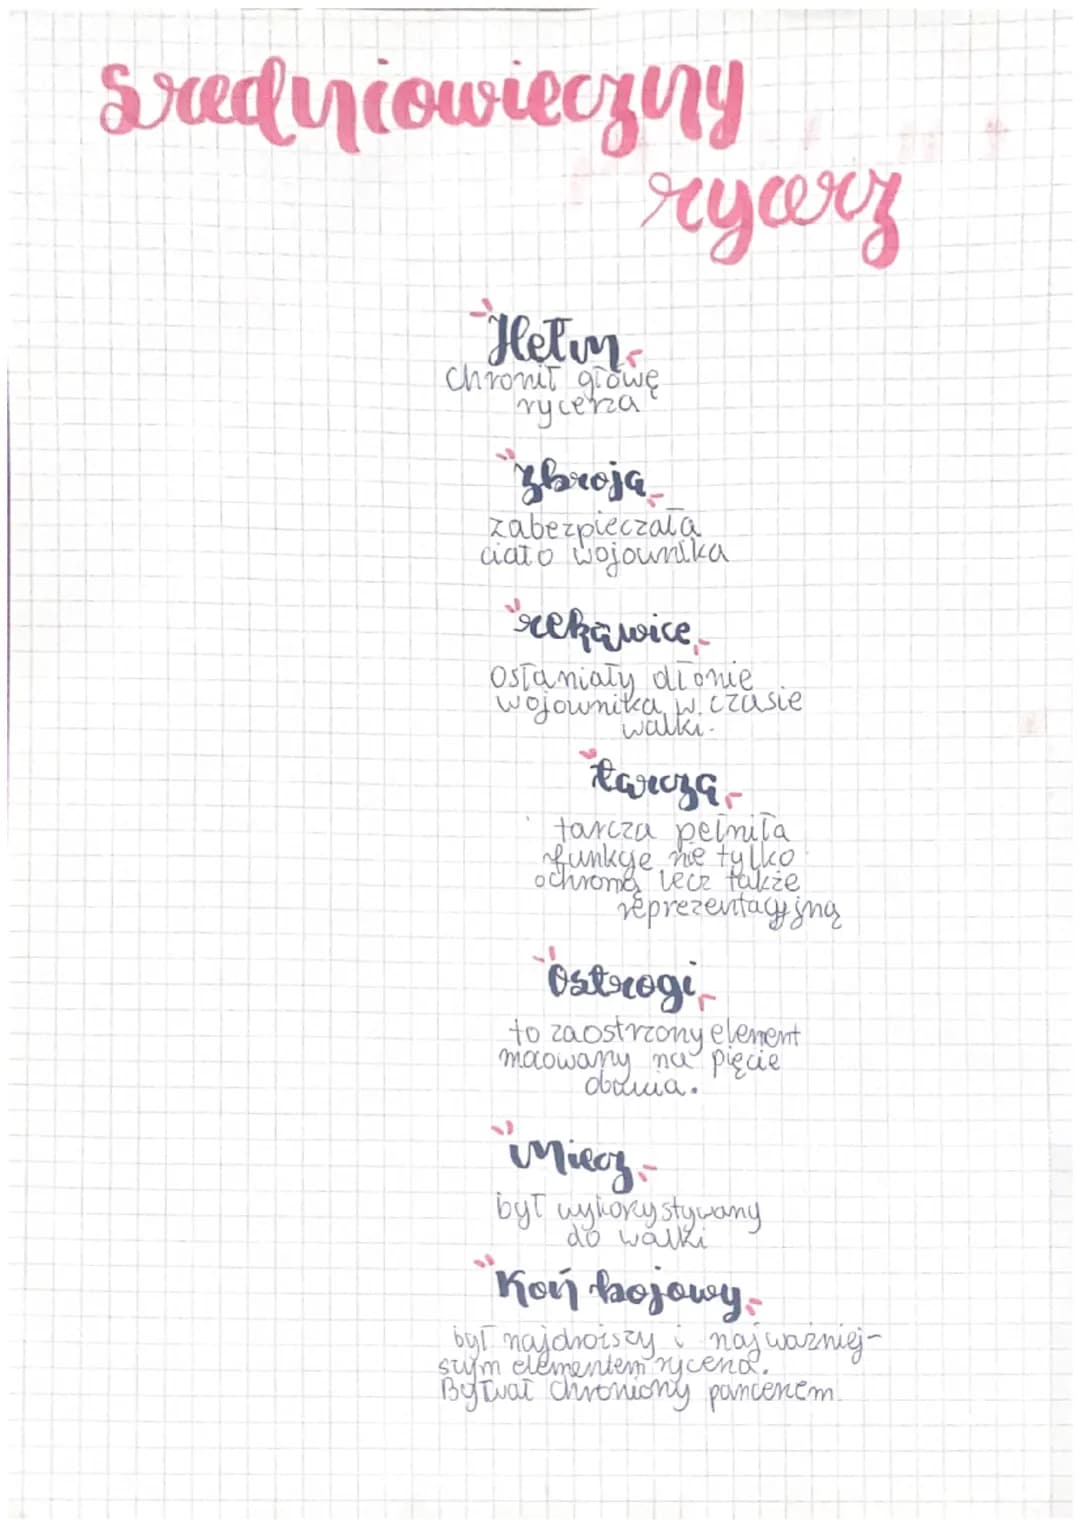 średniowieczny
rycerz
Hełm
chronił głowę
rycerza
zbroja
zabezpieczała
ciało wojownika
rękawice
osłaniały dłonie
wojownika w czasie
walki.
tarcza
tarcza pełniła
funkcje nie tylko
ochroną lecz także
reprezentacyjną
Ostrogi
to zaostrzony element
mocowany na pięcie
obuwia.
Miecz
był wykorzystywany
do walki
Koń bojowy
był najdroższy i najważniej-
szym elementem rycerza.
Bytwał chroniony pancerzem.